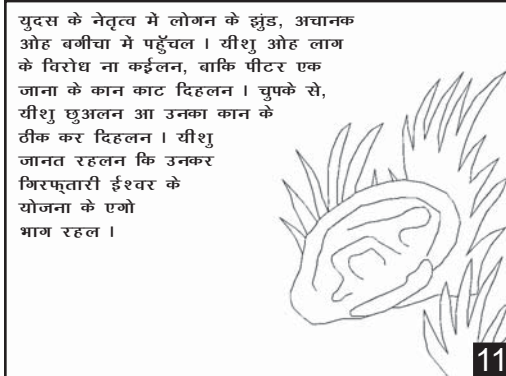 युदस के नेतृत्व में लोगन के झुंड, अचानक
ओह बगीचा में पहुँचल । यीशु ओह लाग
के विरोध ना कईलन, बाकि पीटर एक
जाना के कान काट दिहलन । चुपके से,
यीशु छुअलन आ उनका कान के
ठीक कर दिहलन । यीशु
जानत रहलन कि उनकर
गिरफ्तारी ईश्वर के
योजना के एगो
भाग रहल ।
11